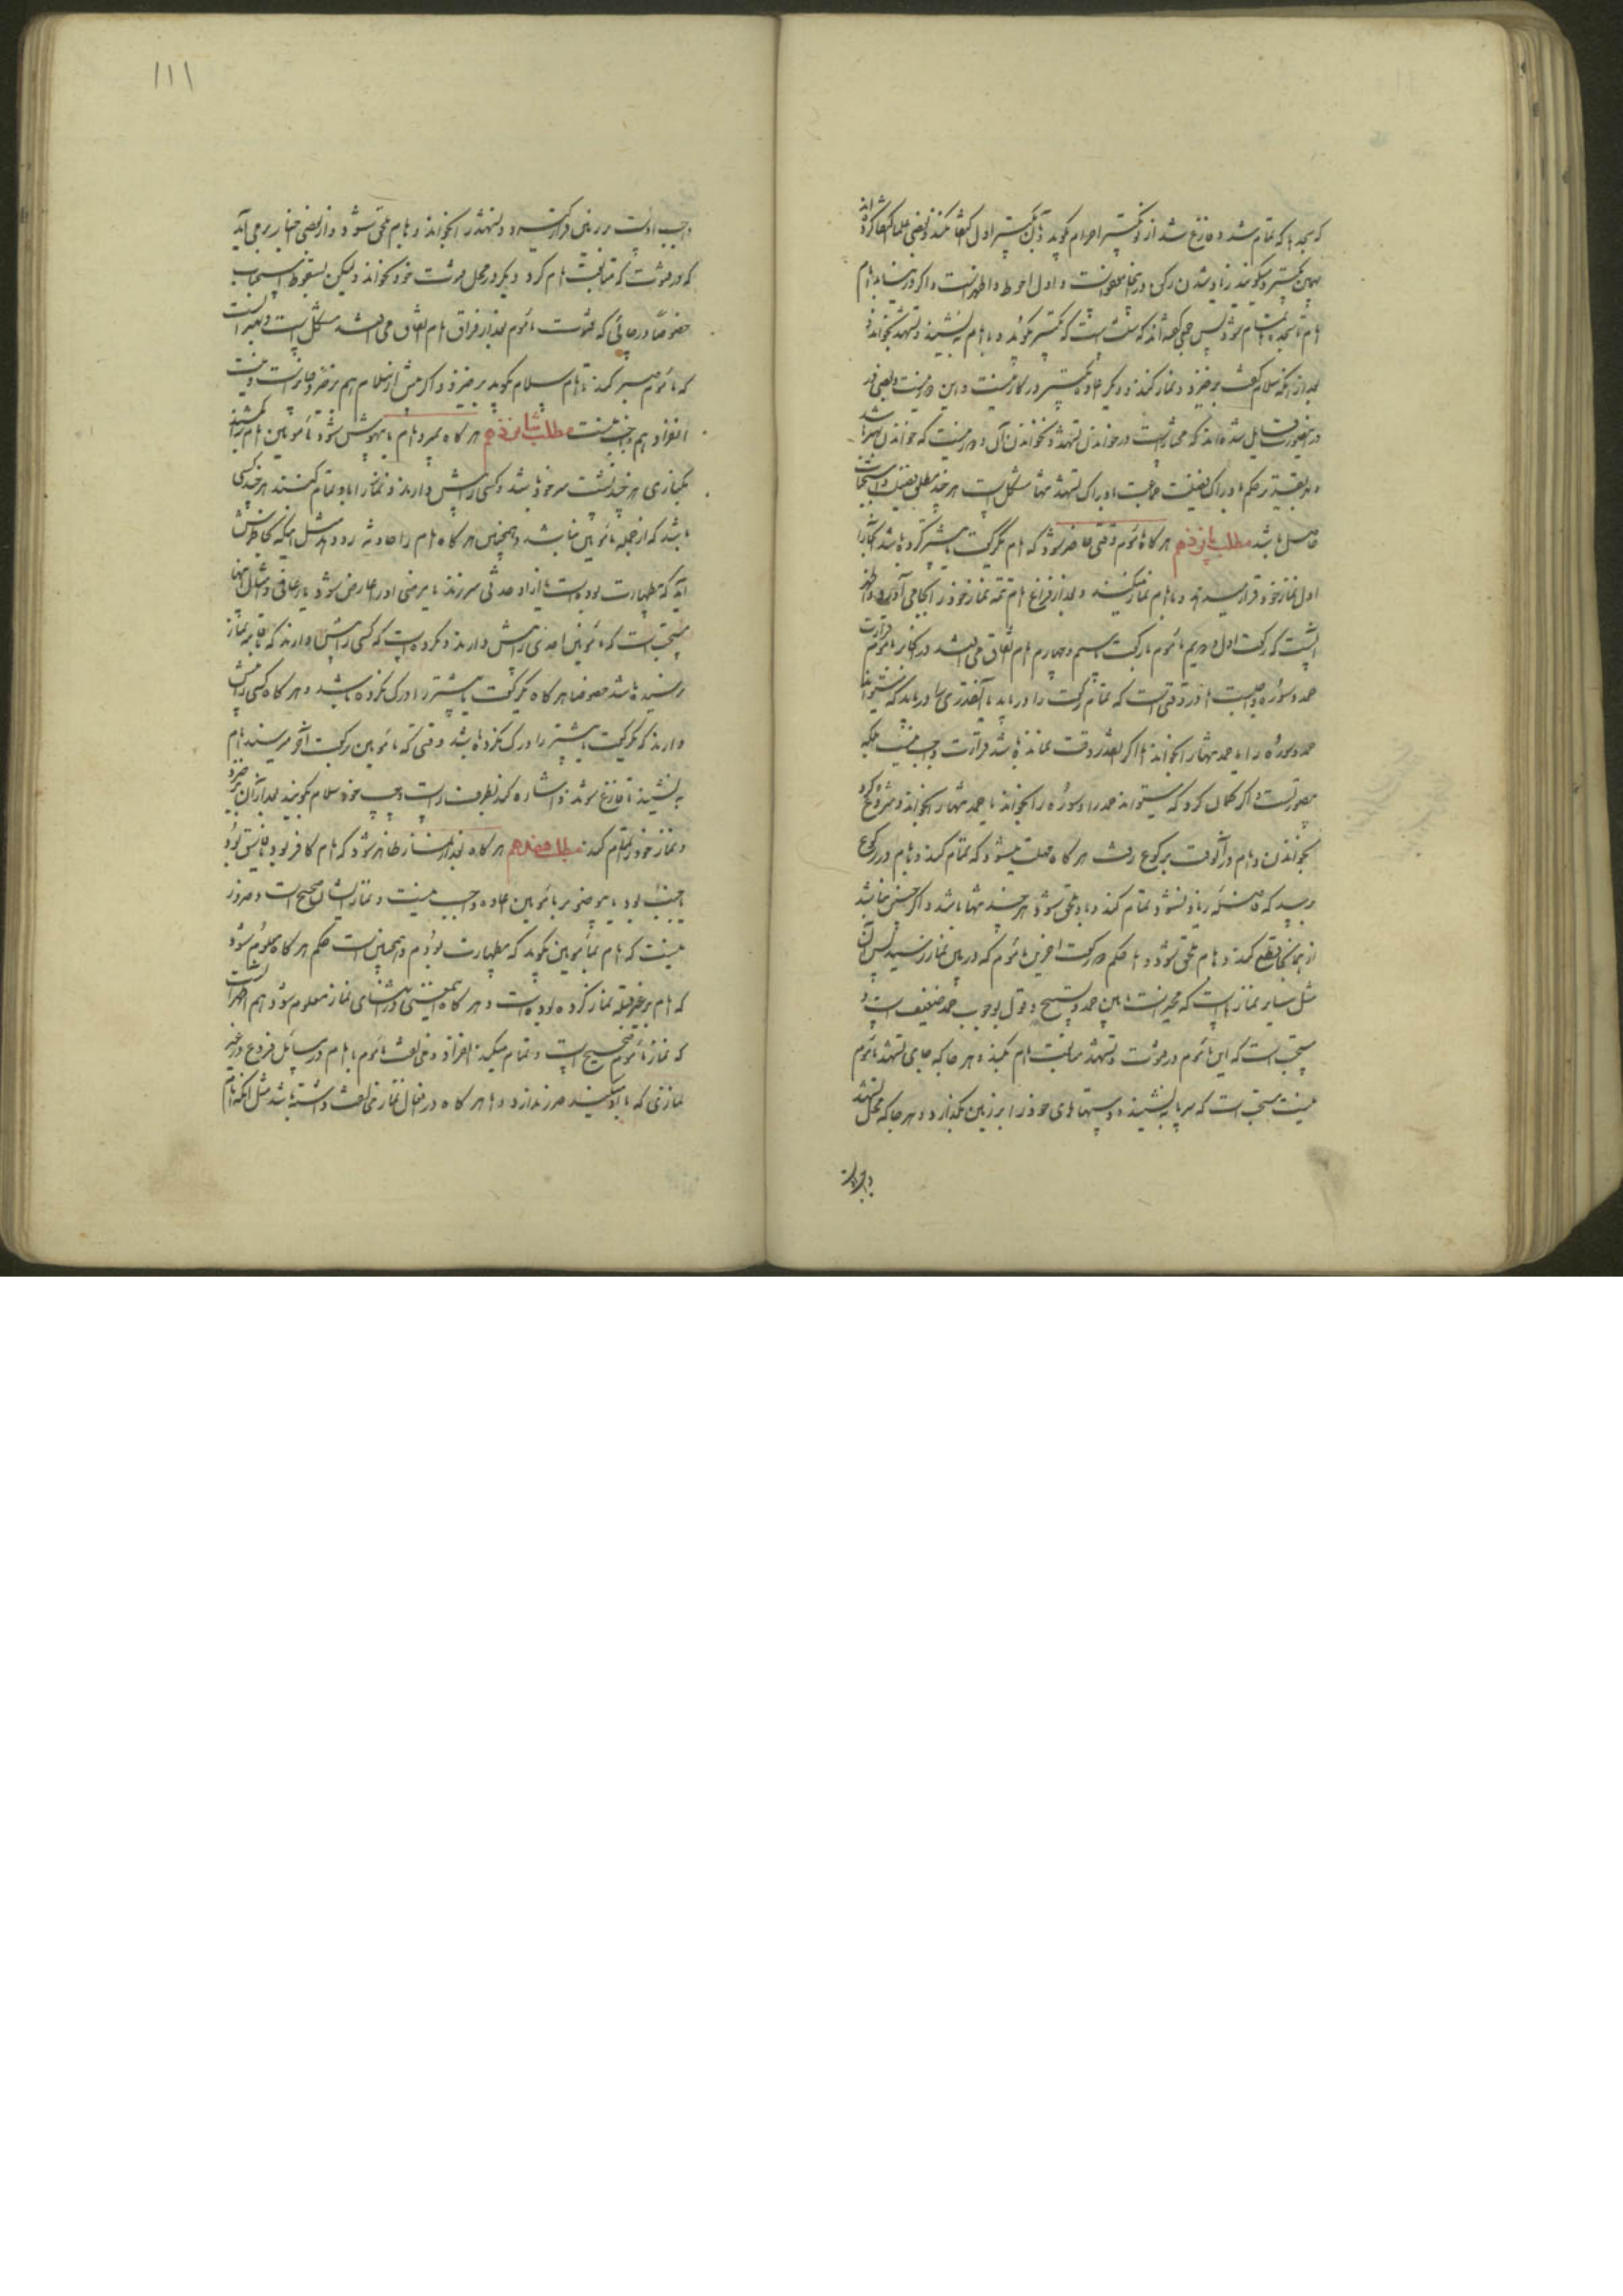 که سجده ها که تمام شد و فارغ شد از نو تکبیر احرام بگوید و بآن تکبیر اول اکتفا نکند و بعضی علما اکتفا کرده اند
بهمین تکبیر و میگویند زیاد شدن رکن در اینجا معفو است و اول احوط و اظهر است و اگر در نیابد امام
امام تا سجده تمام شود پس جمعی گفته اند که سنت است که تکبیر بگوید و با امام بنشیند و تشهد بخواند و
بعد از آنکه سلام گفت برخیزد و نماز کند و دیگر اعاده تکبیر در کار نیست و این
در اینصورت قایل شده اند که مختار است در خواندن تشهد و نخواندن آن و ضرر نیست که خواندن بهتر باشد
و بر تقدیر حکم بادراک فضیلت جماعت بادراک تشهد تنها مشکل است هر چند مطلق فضیلت و استحباب
حاصل باشد مطلب پانزدهم هر گاه مأموم وقتی حاضر شود که امام یکرکعت یا بیشتر کرده باشد آنجا را
اول نماز خود قرار میدهد و با امام نماز میکند و بعد از فراغ امام تتمه نماز خود را بجا می آورد و اظهر
آنست که در رکعت اول و دویم مأموم با رکعت سیم و چهارم امام اتفاق می افتد در آنجا بر مأموم قرائت
حمد و سوره واجب است اما در وقتی است که تمام رکعت را دریابد یا آنقدری را دریابد که بتواند
حمد و سوره را یا حمد تنها را بخواند اما اگر بقدر وقت نمانده باشد قرائت واجب نیست بلکه
بیصورت است و اگر گمان کرد که میتواند حمد را و سوره را بخواند یا حمد تنها را بخواند و شروع کرد
بخواندن و امام در آنوقت برکوع رفت هر گاه مهلت میشود که تمام کند و بامام در رکوع
برسد که فاصله زیاد نشود تمام کند و باو ملحق شود هر چند تنها باشد و اگر چنین نباشد
از همانجا قطع کند و بامام ملحق شود و اما حکم دو رکعت آخرین مأموم که در بین نماز رسید پس آن
مثل سایر نمازها است که مخیر است مابین حمد و تسبیح و قول بوجوب حمد ضعیف است و
مستحب است که این مأموم در قنوت و تشهد متابعت امام بکند و هر جا که جای تشهد مأموم
نیست مستحب است که سر پا بنشیند و دستهای خود را بر زمین بگذارد و هر جا که محل تشهد
۱۱۱
واجب اوست بر زمین قرار بگیرد و تشهد را بخواند و بامام ملحق شود و از بعضی اخبار بر می آید
که در قنوت که متابعت امام کرد دیگر در محل قنوت خود نخواند و لیکن سقوط استحباب
خصوصاً در جائی که قنوت مأموم بعد از فراق امام اتفاق می افتد مشکل است و بهتر آنست
که مأموم صبر کند تا امام سلام بگوید برخیزد و اگر پیش از سلام هم برخیزد جایز است و نیت
انفراد هم واجب نیست مطلب شانزدهم هر گاه بمیرد امام یا بیهوش شود مأمومین امام را بکشند
بکناری هر چند مشت سر خود باشد و کسی را پیش وا دارند و نماز را با او تمام کنند هر چند کسی
باشد که از جمله مأمومین نباشد و همچنین هر گاه امام را حادثه رو دهد مثل اینکه بخاطرش
آید که بی طهارت بوده است یا از او حدثی سر زند یا مرضی او را عارض شود یا رعافی و مثل اینها
مستحب است که مأمومین احدی را پیش وا دارند و مکروه است که کسی را پیش وا دارند که باقامه نماز
نرسیده باشد خصوصا هر گاه یکرکعت یا بیشتر را درک نکرده باشد و هر گاه کسی را پیش
وا دارند که یکرکعت یا بیشتر را درک نکرده باشد وقتی که مأمومین برکعت آخر میرسند امام
بنشیند تا فارغ شوند و اشاره کند بطرف راست و چپ خود سلام بگویند بعد از آن برخیزد
و نماز خود را تمام کند مطلب هفدهم هر گاه بعد از نماز ظاهر شود که امام کافر بود یا فاسق بود
یا جنب بود یا بیوضو بر مأمومین اعاده واجب نیست و نماز ایشان صحیح است و ضرور
نیست که امام بمأمومین بگوید که بیطهارت بودم و همچنین است حکم هر گاه معلوم شود
که امام بر غیر قبله نماز کرده بوده است و هر گاه اینمعنی در اثنای نماز معلوم شود هم اظهر آنست
که نماز مأموم صحیح است و تمام میکند انفراد و مخالفت مأموم با امام در مسایل فروع در غیر
نمازی که با او میکند ضرر ندارد و اما هر گاه در افعال نماز مخالفت داشته باشد مثل آنکه امام